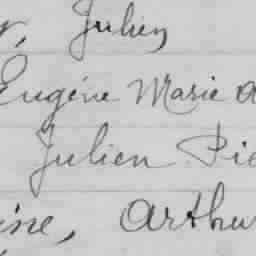 , Julien
Eugène Marie
Julien Pie
, Arthu